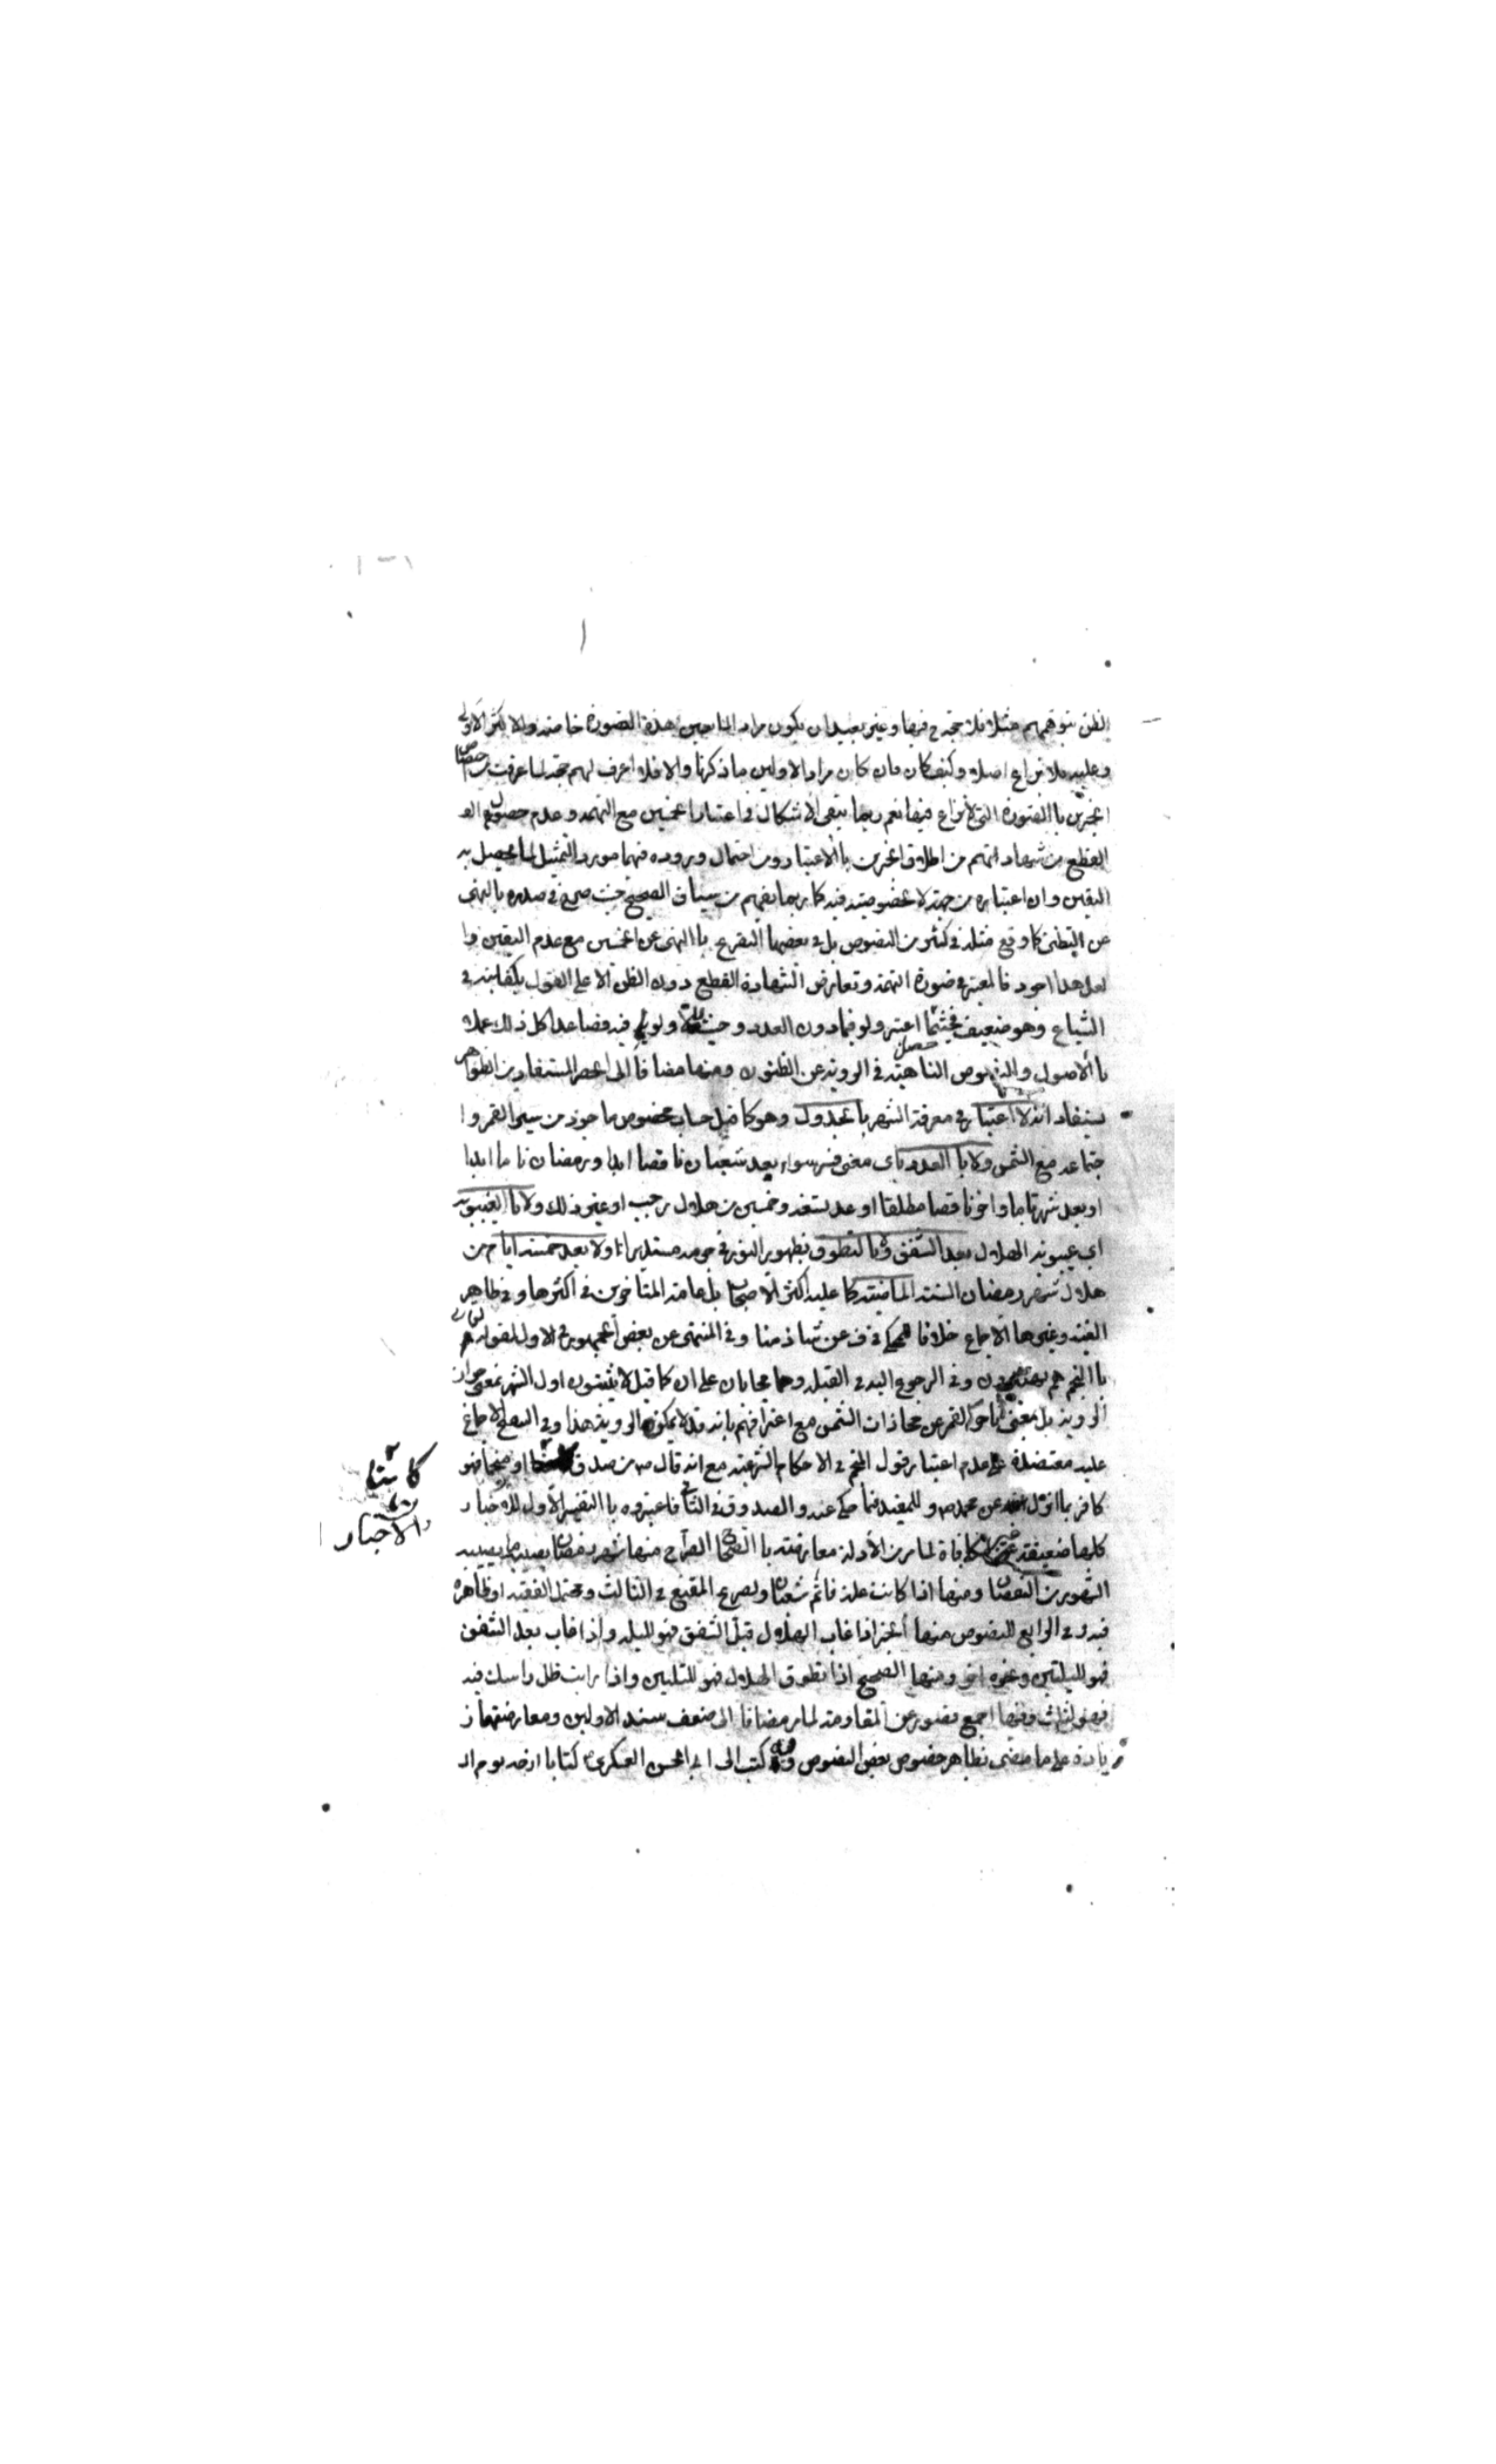 الظن بتوهمهم مثلا فلا تقدح فيها وغير بعيد ان يكون مراد المانعين هذه الصورة خاصة والا لكثر الاولى
وعليه فلا نزاع اصلا وكيف كان فان كان مراد الاولين ما ذكرنا والا فلا اعرف لهم حجة لما عرفت من اختصاص
الخبرين بالصورة التي لا نزاع فيها نعم ربما يبقى الاشكال في اعتبار الخمسين مع التهمة وعدم حصول العلم
القطع من شهادتهم من اطلاق الخبرين بالاعتبار ومن احتمال وروده فيهما مورد التمثيل لما يحصل به
اليقين وان اعتباره من جهته لا لخصوصية فيه كما ربما يفهم من سياق الصحيح حيث صرح في صدره بالنهي
عن التظني كما وقع مثله في كثير من النصوص بل في بعضها التفريع بالنهي عن الخمسين مع عدم اليقين وا
لعل هذا اجود فالمعتبر في صورة التهمة وتعارض الشهادة القطع دون الظن الا على القول بكفايته في
الشياع وهو ضعيف فحيثما اعتبر ولو فيما دون العدد وحيث ولو فيه فصاعدا كل ذلك عملا
بالاصول والنصوص الناهية في الروية عن الظنون ومنها مضافا الى الحصر المستفاد من الظواهر
يستفاد انه لا اعتبار في معرفة الشهر بالجدول وهو كما قيل حساب مخصوص ماخوذ من سير القمر وا
جتماعه مع الشمس ولا بالعدد باي معنى فسر سواء بعد شعبان ناقصا ابدا ورمضان تاما ابدا
او بعد شهر تاما واخر ناقصا مطلقا او عد تسعة وخمسين من هلال رجب او غير ذلك ولا بالغيبوبة
اي غيبوبة الهلال بعد الشفق ولا بالتطوق بظهور النور في جرمه مستديرا ولا بعد خمسة ايام من
هلال شهر رمضان السنة الماضية كما عليه اكثر الاصحاب بل عامة المتاخرين في اكثرها وفي ظاهر
الغنية وغيرها الاجماع خلافا للمحكي في ف عن شاذ منا وفي المنتهى عن بعض الجمهور في الاول لقوله تعالى
بالنجم هم يهتدون وفي الرجوع اليه في القبلة وهما يجابان على ان كما قيل لا يثبتون اول الشهر بمعنى جواز
الروية بل بمعنى تاخر القمر عن محاذات الشمس مع اعترافهم بانه قد لا يمكن الروية هذا وفي المصابيح الاجماع
عليه معتضدة على عدم اعتبار قول المنجم في الاحكام الشرعية مع انه قال ص من صدق كاهنا او منجما فهو
كافر بما انزل على محمد ص وللمفيد فيما حكي عنه والصدوق في الثاني فاعتبروه بالتفسير الاول للاخبار
كلها ضعيفة غير مكافاة لما مر من الادلة معارضة بالصحاح الصراح منها شهر رمضان يصيبه ما يصيب
الشهور من النقصان ومنها اذا كانت علة فاتم شعبان ولصريح المقنع في الثالث ومحتمل الفقيه او ظاهره
فيه وفي الرابع للنصوص منها الخبر اذا غاب الهلال قبل الشفق فهو لليلة واذا غاب بعد الشفق
فهو لليلتين ونحوه اخر ومنها الصحيح اذا تطوق الهلال فهو لليلتين واذا رايت ظل راسك فيه
فهو لثلاث وفيها اجمع قصور عن المقاومة لما مر مضافا الى ضعف سند الاولين ومعارضتها ز
زيادة على ما مضى بظاهر خصوص بعض النصوص وفيه كتب الى ابي الحسن العسكري ع كتابا ارخه يوم الـ
والاخبار